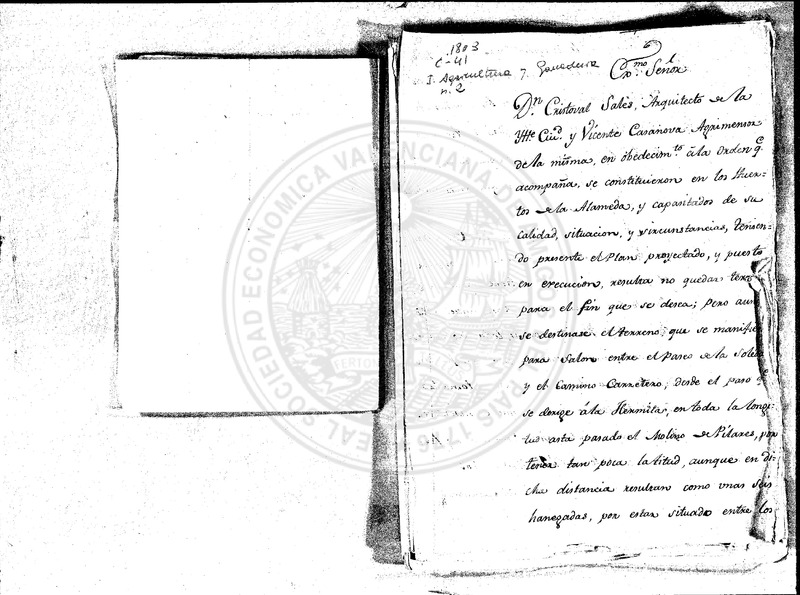 1803
C-41
I. Agricultura y Ganaderia
n.2
Exmo. Señor
Dn. Cristoval Sales, Arquitecto de la
Ytte. Ciud. y Vicente Casanova Agrimensor
de la misma, en obedecimto. á la Orden qe.
acompaña, se constituieron en los Huer-
tos de la Alameda, y capasitados de su
Calidad, situacion, y sircunstancias, tenien-
do presente el Plan proyectado, y puesto
en execucion, resulta no quedar
para el fin que se desea; pero
se destinase el terreno que se
para Salon entre el Paseo de la
y el Camino Carretero; desde el paso qe.
se dirige á la Hermita, en toda la longi-
tud asta pasado el Molino de Pilares, por
tener tan poca latitud, aunque en di-
cha distancia resultan como unas seis
hanegadas, por estar situado entre los
REAL SOCIEDAD ECONOMICA VALENCIANA DE AMIGOS DEL PAIS 1776